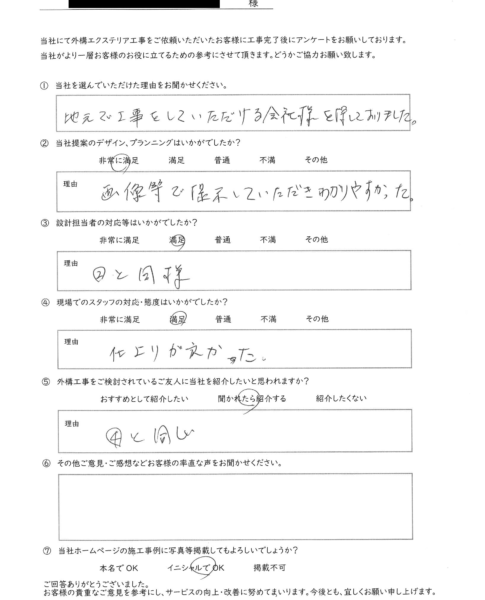 様
当社にて外構エクステリア工事をご依頼いただいたお客様に工事完了後にアンケートをお願いしております。
当社がより一層お客様のお役に立てるための参考にさせて頂きます。どうかご協力お願い致します。
① 当社を選んでいただけた理由をお聞かせください。
地元で工事をしていただける会社様を探しておりました。
② 当社提案のデザイン、プランニングはいかがでしたか?
非常に満足 満足 普通 不満 その他
理由 画像等で提示していただきわかりやすかった。
③ 設計担当者の対応等はいかがでしたか?
非常に満足 満足 普通 不満 その他
理由 ②と同様
④ 現場でのスタッフの対応・態度はいかがでしたか?
非常に満足 満足 普通 不満 その他
理由 仕上りが良かった。
⑤ 外構工事をご検討されているご友人に当社を紹介したいと思われますか?
おすすめとして紹介したい 聞かれたら紹介する 紹介したくない
理由 ④と同じ
⑥ その他ご意見・ご感想などお客様の率直な声をお聞かせください。
⑦ 当社ホームページの施工事例に写真等掲載してもよろしいでしょうか?
本名で OK イニシャルで OK 掲載不可
ご回答ありがとうございました。
お客様の貴重なご意見を参考にし、サービスの向上・改善に努めてまいります。今後とも、宜しくお願い申し上げます。